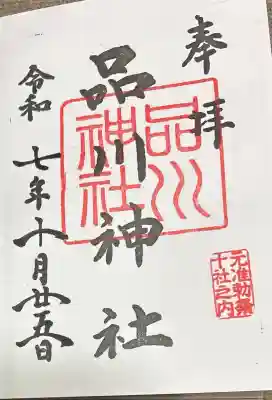 奉拝
品川神社
品川
神社
元准勅祭
十社之内
令和七年十月廿五日